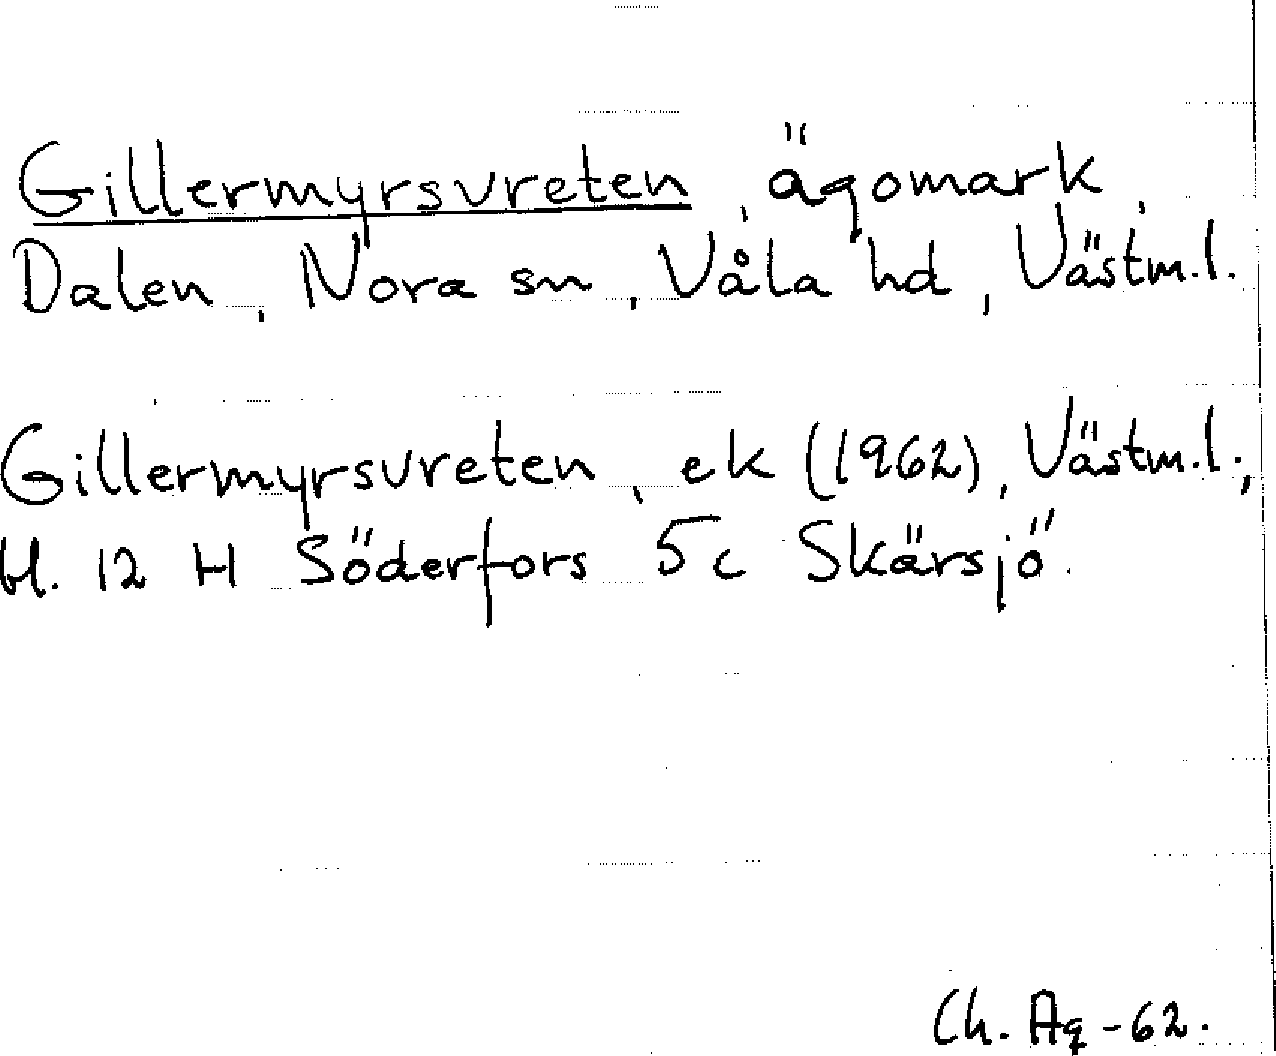 Gillermyrsvreten, ägomark,
Dalen, Nora sn, Våla hd, Västm.l.
Gillermyrsvreten, ek (1962), Västm.l.,
bl. 12 H Söderfors 5c Skärsjö.
Ch. Ag -62.